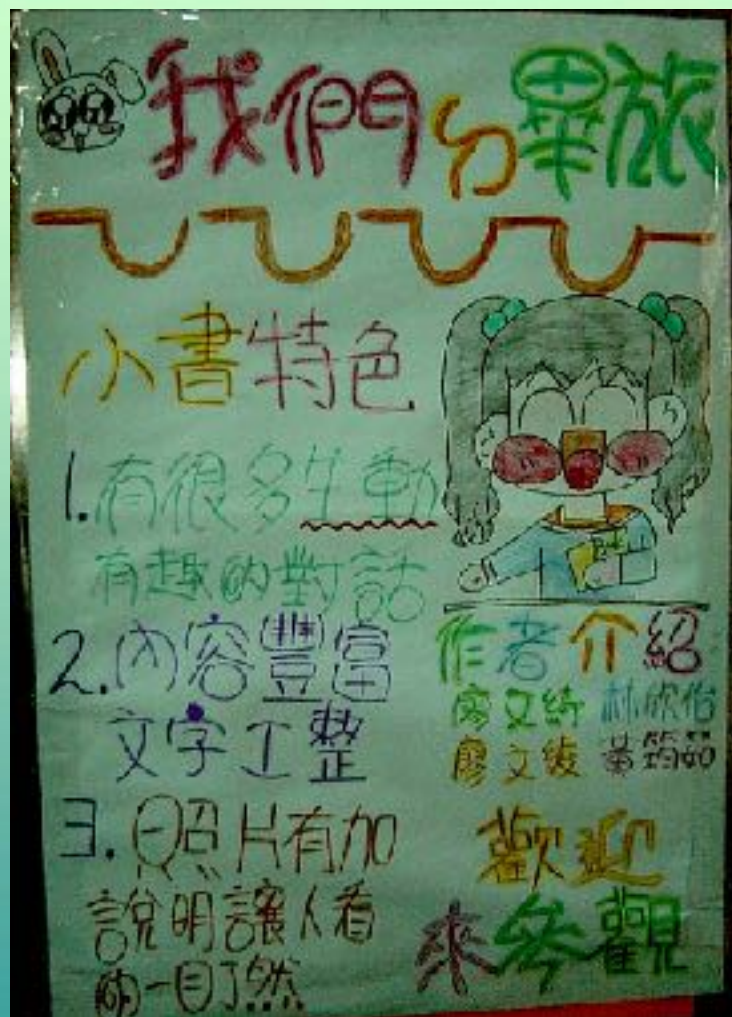 我們ㄉ畢旅
小書特色
1.有很多生動
有趣的對話
2.內容豐富
文字工整
3.照片有加
說明讓人看
的一目了然
作者介紹
廖文綺 林欣怡
廖文綾 黃筠茹
歡迎
來參觀